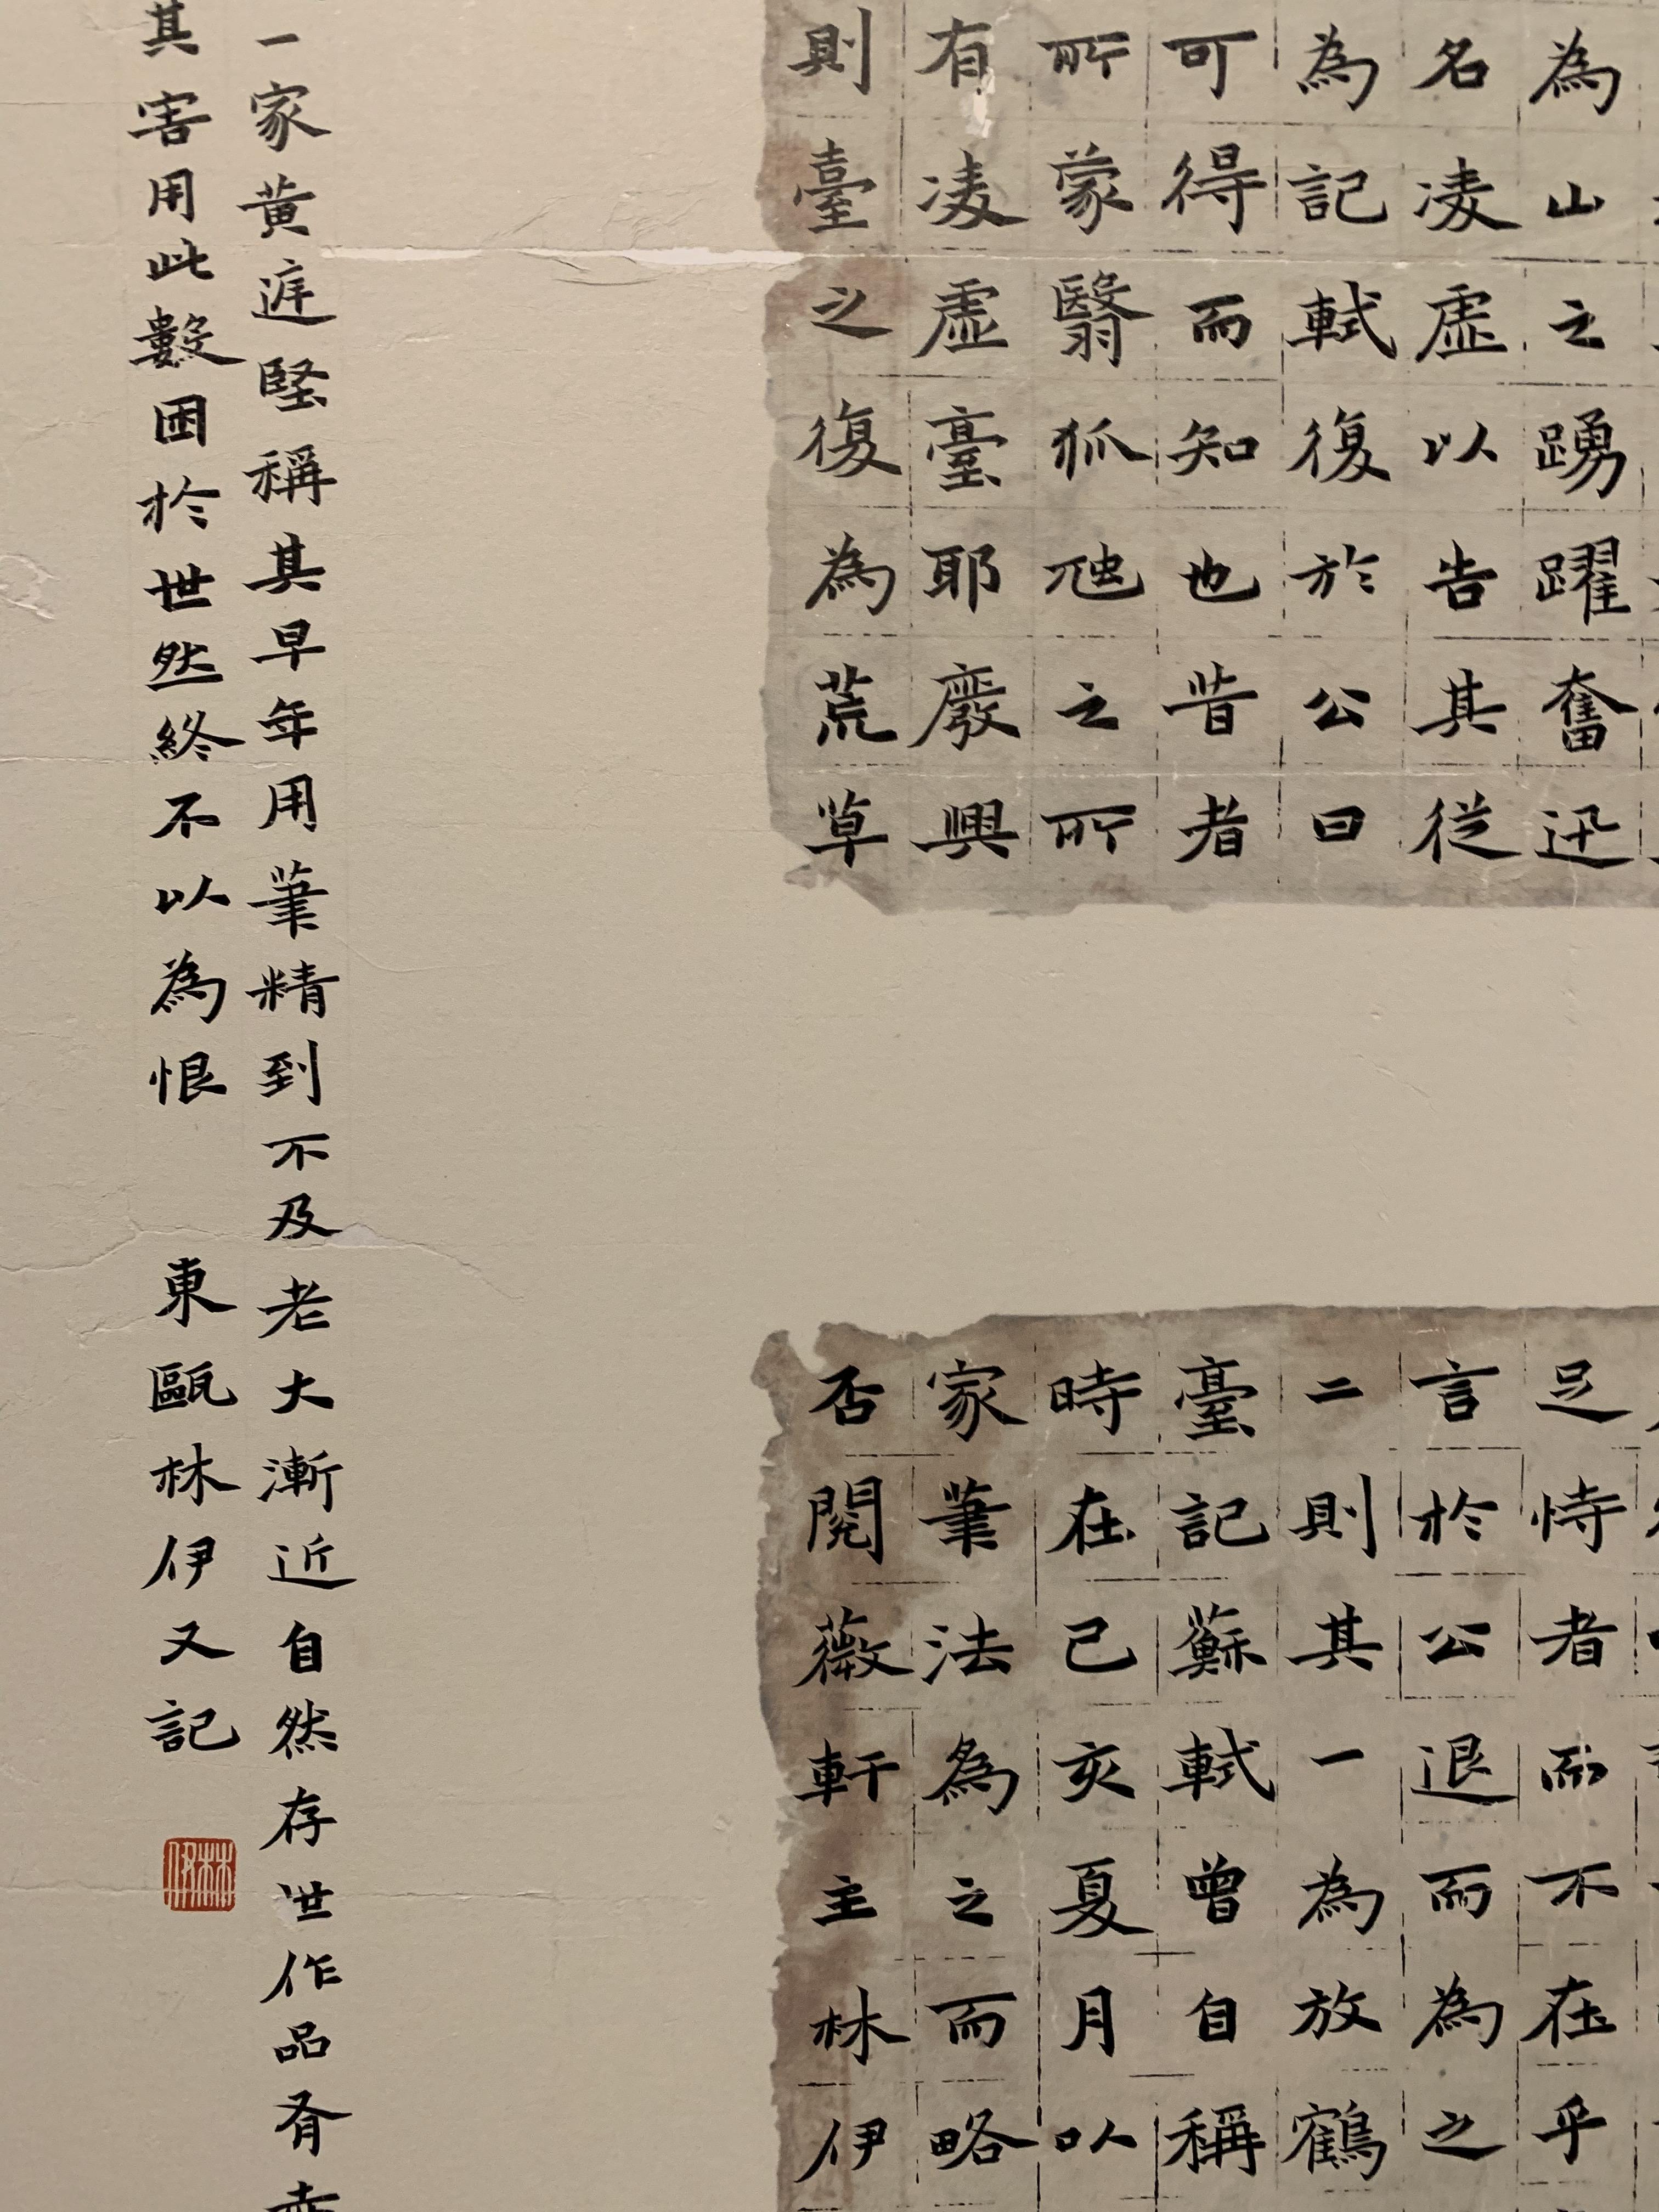 為山之踴躍奮迅
名凌虛以告其從
為記軾復於公曰
可得而知也昔者
所蒙翳狐虺之所
有凌虛臺耶廢興
則臺之復為荒草
足恃者而不在乎
言於公退而為之
二則其一為放鶴
臺記蘇軾曾自稱
時在己亥夏月以
家筆法為之而略
否閱薇軒主林伊
一家黃庭堅稱其早年用筆精到不及老大漸近自然存世作品有赤
其害用此數困於世然終不以為恨 東甌林伊又記
林伊